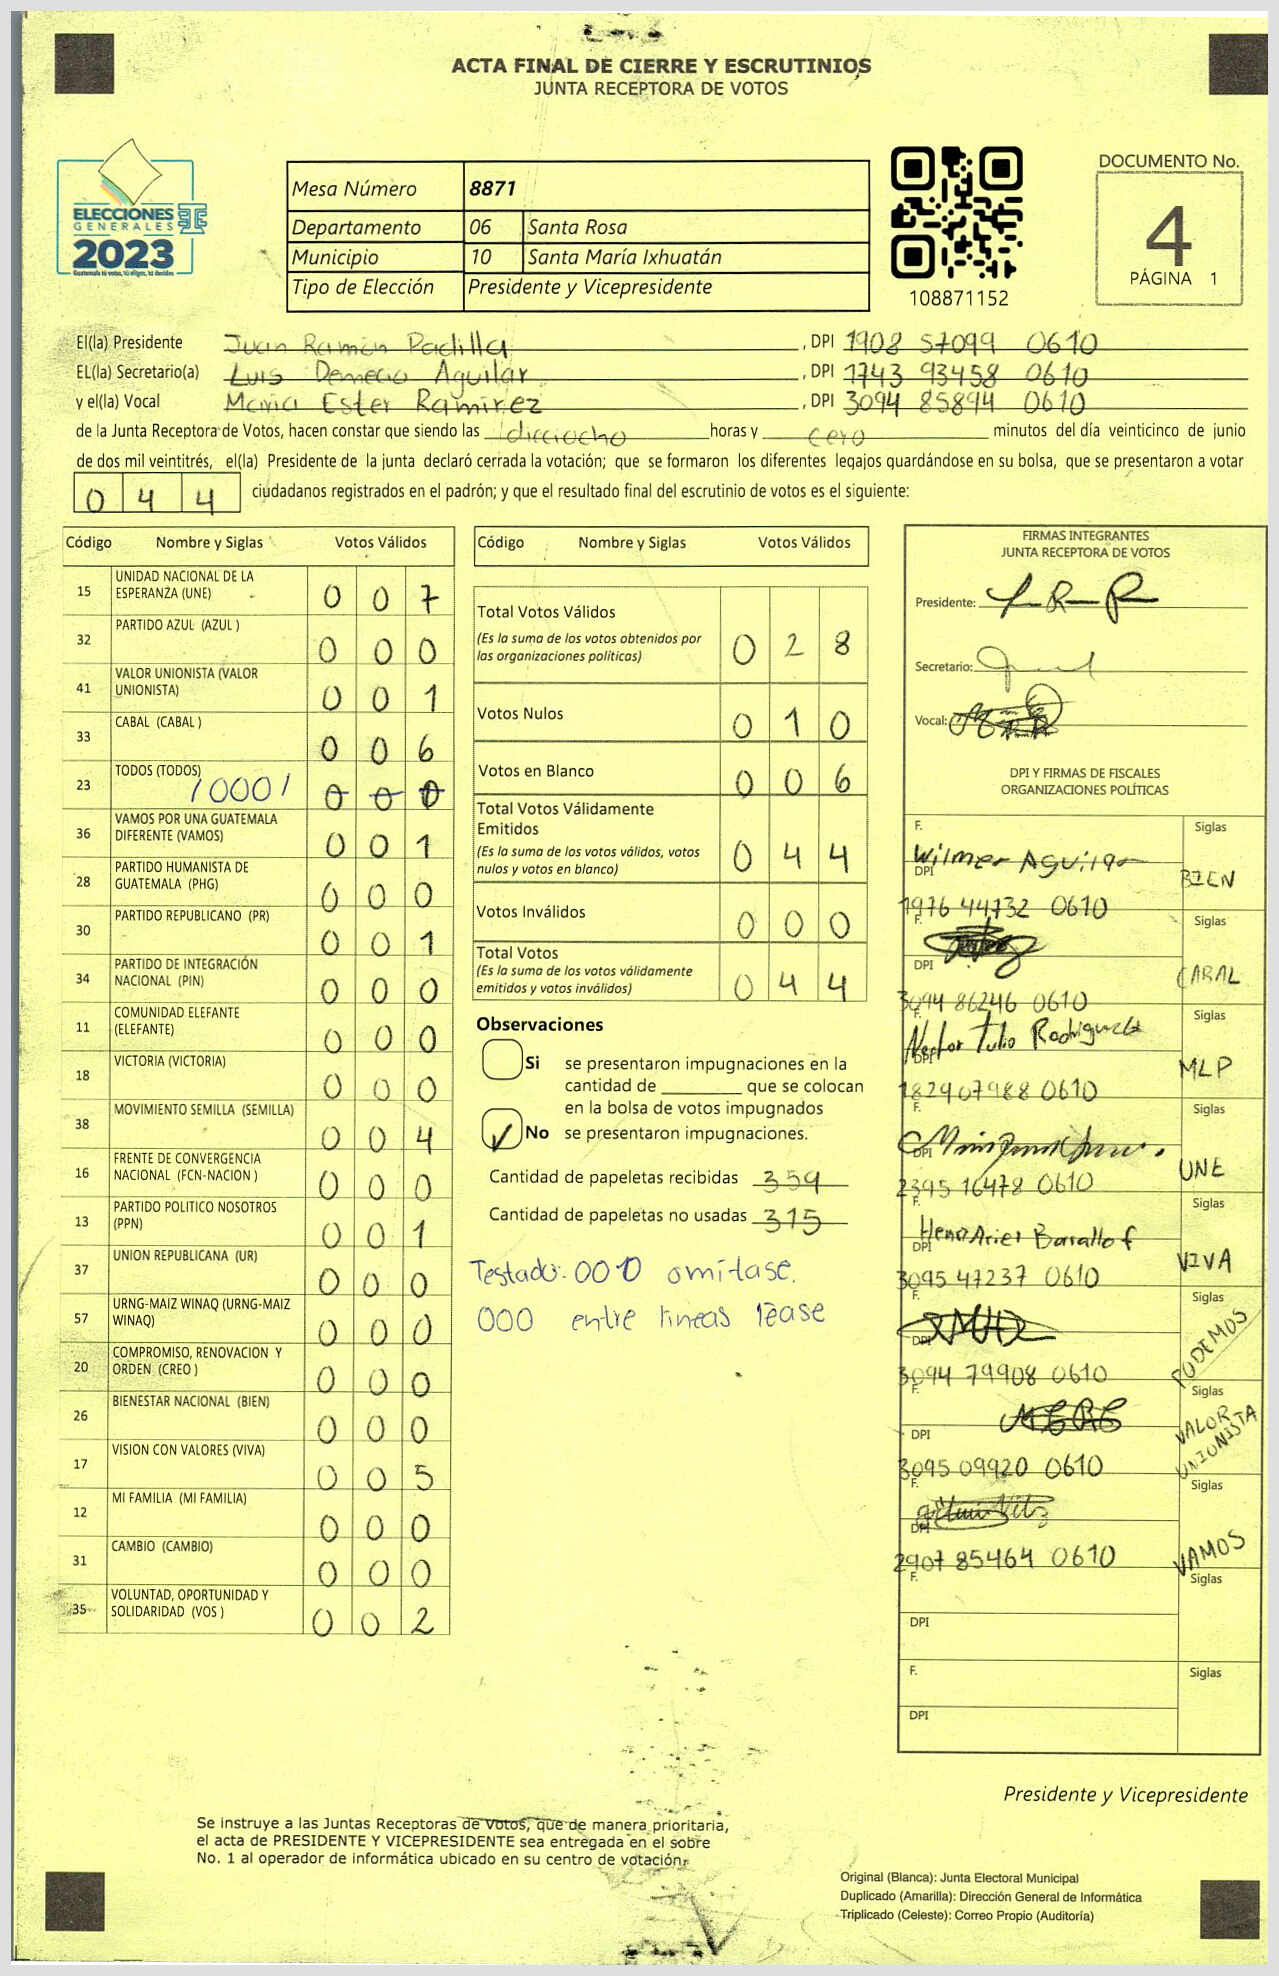 ACTA FINAL DE CIERRE Y ESCRUTINIOS
JUNTA RECEPTORA DE VOTOS
ELECCIONES
GENERALES
2023
Guatemala tú votas, tú eliges, tú decides
Mesa Número 8871
Departamento 06 Santa Rosa
Municipio 10 Santa María Ixhuatán
Tipo de Elección Presidente y Vicepresidente
108871152
DOCUMENTO No.
4
PÁGINA 1
El(la) Presidente Juan Ramón Padilla, DPI 1908 57099 0610
EL(la) Secretario(a) Luis Demecio Aguilar, DPI 1743 93458 0610
y el(la) Vocal Maria Ester Ramirez, DPI 3094 85894 0610
de la Junta Receptora de Votos, hacen constar que siendo las dieciocho horas y cero minutos del día veinticinco de junio
de dos mil veintitrés, el(la) Presidente de la junta declaró cerrada la votación; que se formaron los diferentes legajos guardándose en su bolsa, que se presentaron a votar
0 4 4 ciudadanos registrados en el padrón; y que el resultado final del escrutinio de votos es el siguiente:
Código Nombre y Siglas Votos Válidos
15 UNIDAD NACIONAL DE LA ESPERANZA (UNE) 0 0 7
32 PARTIDO AZUL (AZUL ) 0 0 0
41 VALOR UNIONISTA (VALOR UNIONISTA) 0 0 1
33 CABAL (CABAL ) 0 0 6
23 TODOS (TODOS) /000/ 0 0 0
36 VAMOS POR UNA GUATEMALA DIFERENTE (VAMOS) 0 0 1
28 PARTIDO HUMANISTA DE GUATEMALA (PHG) 0 0 0
30 PARTIDO REPUBLICANO (PR) 0 0 1
34 PARTIDO DE INTEGRACIÓN NACIONAL (PIN) 0 0 0
11 COMUNIDAD ELEFANTE (ELEFANTE) 0 0 0
18 VICTORIA (VICTORIA) 0 0 0
38 MOVIMIENTO SEMILLA (SEMILLA) 0 0 4
16 FRENTE DE CONVERGENCIA NACIONAL (FCN-NACION ) 0 0 0
13 PARTIDO POLITICO NOSOTROS (PPN) 0 0 1
37 UNION REPUBLICANA (UR) 0 0 0
57 URNG-MAIZ WINAQ (URNG-MAIZ WINAQ) 0 0 0
20 COMPROMISO, RENOVACION Y ORDEN (CREO ) 0 0 0
26 BIENESTAR NACIONAL (BIEN) 0 0 0
17 VISION CON VALORES (VIVA) 0 0 5
12 MI FAMILIA (MI FAMILIA) 0 0 0
31 CAMBIO (CAMBIO) 0 0 0
35 VOLUNTAD, OPORTUNIDAD Y SOLIDARIDAD (VOS ) 0 0 2
Código Nombre y Siglas Votos Válidos
Total Votos Válidos 0 2 8
(Es la suma de los votos obtenidos por
las organizaciones políticas)
Votos Nulos 0 1 0
Votos en Blanco 0 0 6
Total Votos Válidamente
Emitidos 0 4 4
(Es la suma de los votos válidos, votos
nulos y votos en blanco)
Votos Inválidos 0 0 0
Total Votos 0 4 4
(Es la suma de los votos válidamente
emitidos y votos inválidos)
Observaciones
Si se presentaron impugnaciones en la
cantidad de ________ que se colocan
en la bolsa de votos impugnados
No se presentaron impugnaciones.
Cantidad de papeletas recibidas 359
Cantidad de papeletas no usadas 315
Testado: 000 omitase.
000 entre lineas léase
FIRMAS INTEGRANTES
JUNTA RECEPTORA DE VOTOS
Presidente:
Secretario:
Vocal:
DPI Y FIRMAS DE FISCALES
ORGANIZACIONES POLÍTICAS
F. Wilmer Aguilar Siglas BIEN
DPI 1976 44732 0610
F. Siglas CABAL
DPI 3094 86246 0610
F. Nestor Tulio Rodriguez Siglas MLP
DPI 182907988 0610
F. Siglas UNE
DPI 2395 16478 0610
F. Siglas VIVA
DPI 3095 47237 0610
F. Siglas PODEMOS
DPI 3094 79908 0610
F. Siglas VALOR UNIONISTA
DPI 3095 09920 0610
F. Siglas VAMOS
DPI 2907 85464 0610
F. Siglas
DPI
F. Siglas
DPI
Presidente y Vicepresidente
Se instruye a las Juntas Receptoras de Votos, que de manera prioritaria,
el acta de PRESIDENTE Y VICEPRESIDENTE sea entregada en el sobre
No. 1 al operador de informática ubicado en su centro de votación.
Original (Blanca): Junta Electoral Municipal
Duplicado (Amarilla): Dirección General de Informática
Triplicado (Celeste): Correo Propio (Auditoría)